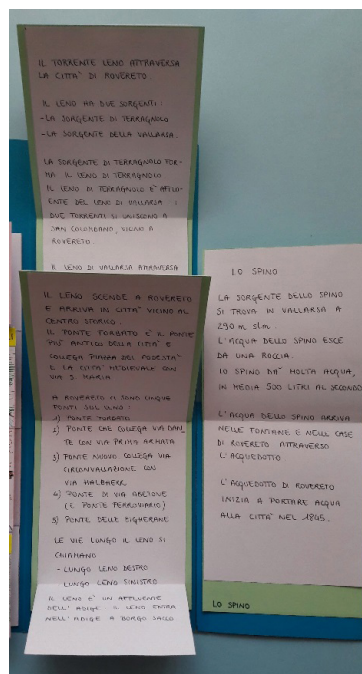 IL TORRENTE LENO ATTRAVERSA
LA CITTA' DI ROVERETO.
IL LENO HA DUE SORGENTI:
-LA SORGENTE DI TERRAGNOLO
-LA SORGENTE DELLA VALLARSA.
LA SORGENTE DI TERRAGNOLO FOR-
MA IL LENO DI TERRAGNOLO
IL LENO DI TERRAGNOLO E' AFFLU-
ENTE DEL LENO DI VALLARSA. I
DUE TORRENTI SI UNISCONO A
SAN COLOMBANO, VICINO A
ROVERETO.
IL LENO DI VALLARSA ATTRAVERSA
IL LENO SCENDE A ROVERETO
E ARRIVA IN CITTA' VICINO AL
CENTRO STORICO.
IL PONTE FORBATO E' IL PONTE
PIU' ANTICO DELLA CITTA' E
COLLEGA PIAZZA DEL PODESTA'
E LA CITTA' MEDIEVALE CON
VIA S. MARIA.
A ROVERETO CI SONO CINQUE
PONTI SUL LENO:
1) PONTE FORBATO
2) PONTE CHE COLLEGA VIA DAN-
TE CON VIA PRIMA ARMATA
3) PONTE NUOVO COLLEGA VIA
CIRCONVALLAZIONE CON
VIA HALBHERR
4) PONTE DI VIA ABETONE
(E PONTE FERROVIARIO)
5) PONTE DELLE ZIGHERANE
LE VIE LUNGO IL LENO SI
CHIAMANO
- LUNGO LENO DESTRO
LUNGO LENO SINISTRO
IL LENO E' UN AFFLUENTE
DELL' ADIGE. IL LENO ENTRA
NELL' ADIGE A BORGO SACCO
LO SPINO
LA SORGENTE DELLO SPINO
SI TROVA IN VALLARSA A
290 m slm.
L'ACQUA DELLO SPINO ESCE
DA UNA ROCCIA.
LO SPINO DA' MOLTA ACQUA,
IN MEDIA 500 LITRI AL SECONDO
L'ACQUA DELLO SPINO ARRIVA
NELLE FONTANE E NELLE CASE
DI ROVERETO ATTRAVERSO
L'ACQUEDOTTO.
L'ACQUEDOTTO DI ROVERETO
INIZIA A PORTARE ACQUA
ALLA CITTA' NEL 1845.
LO SPINO